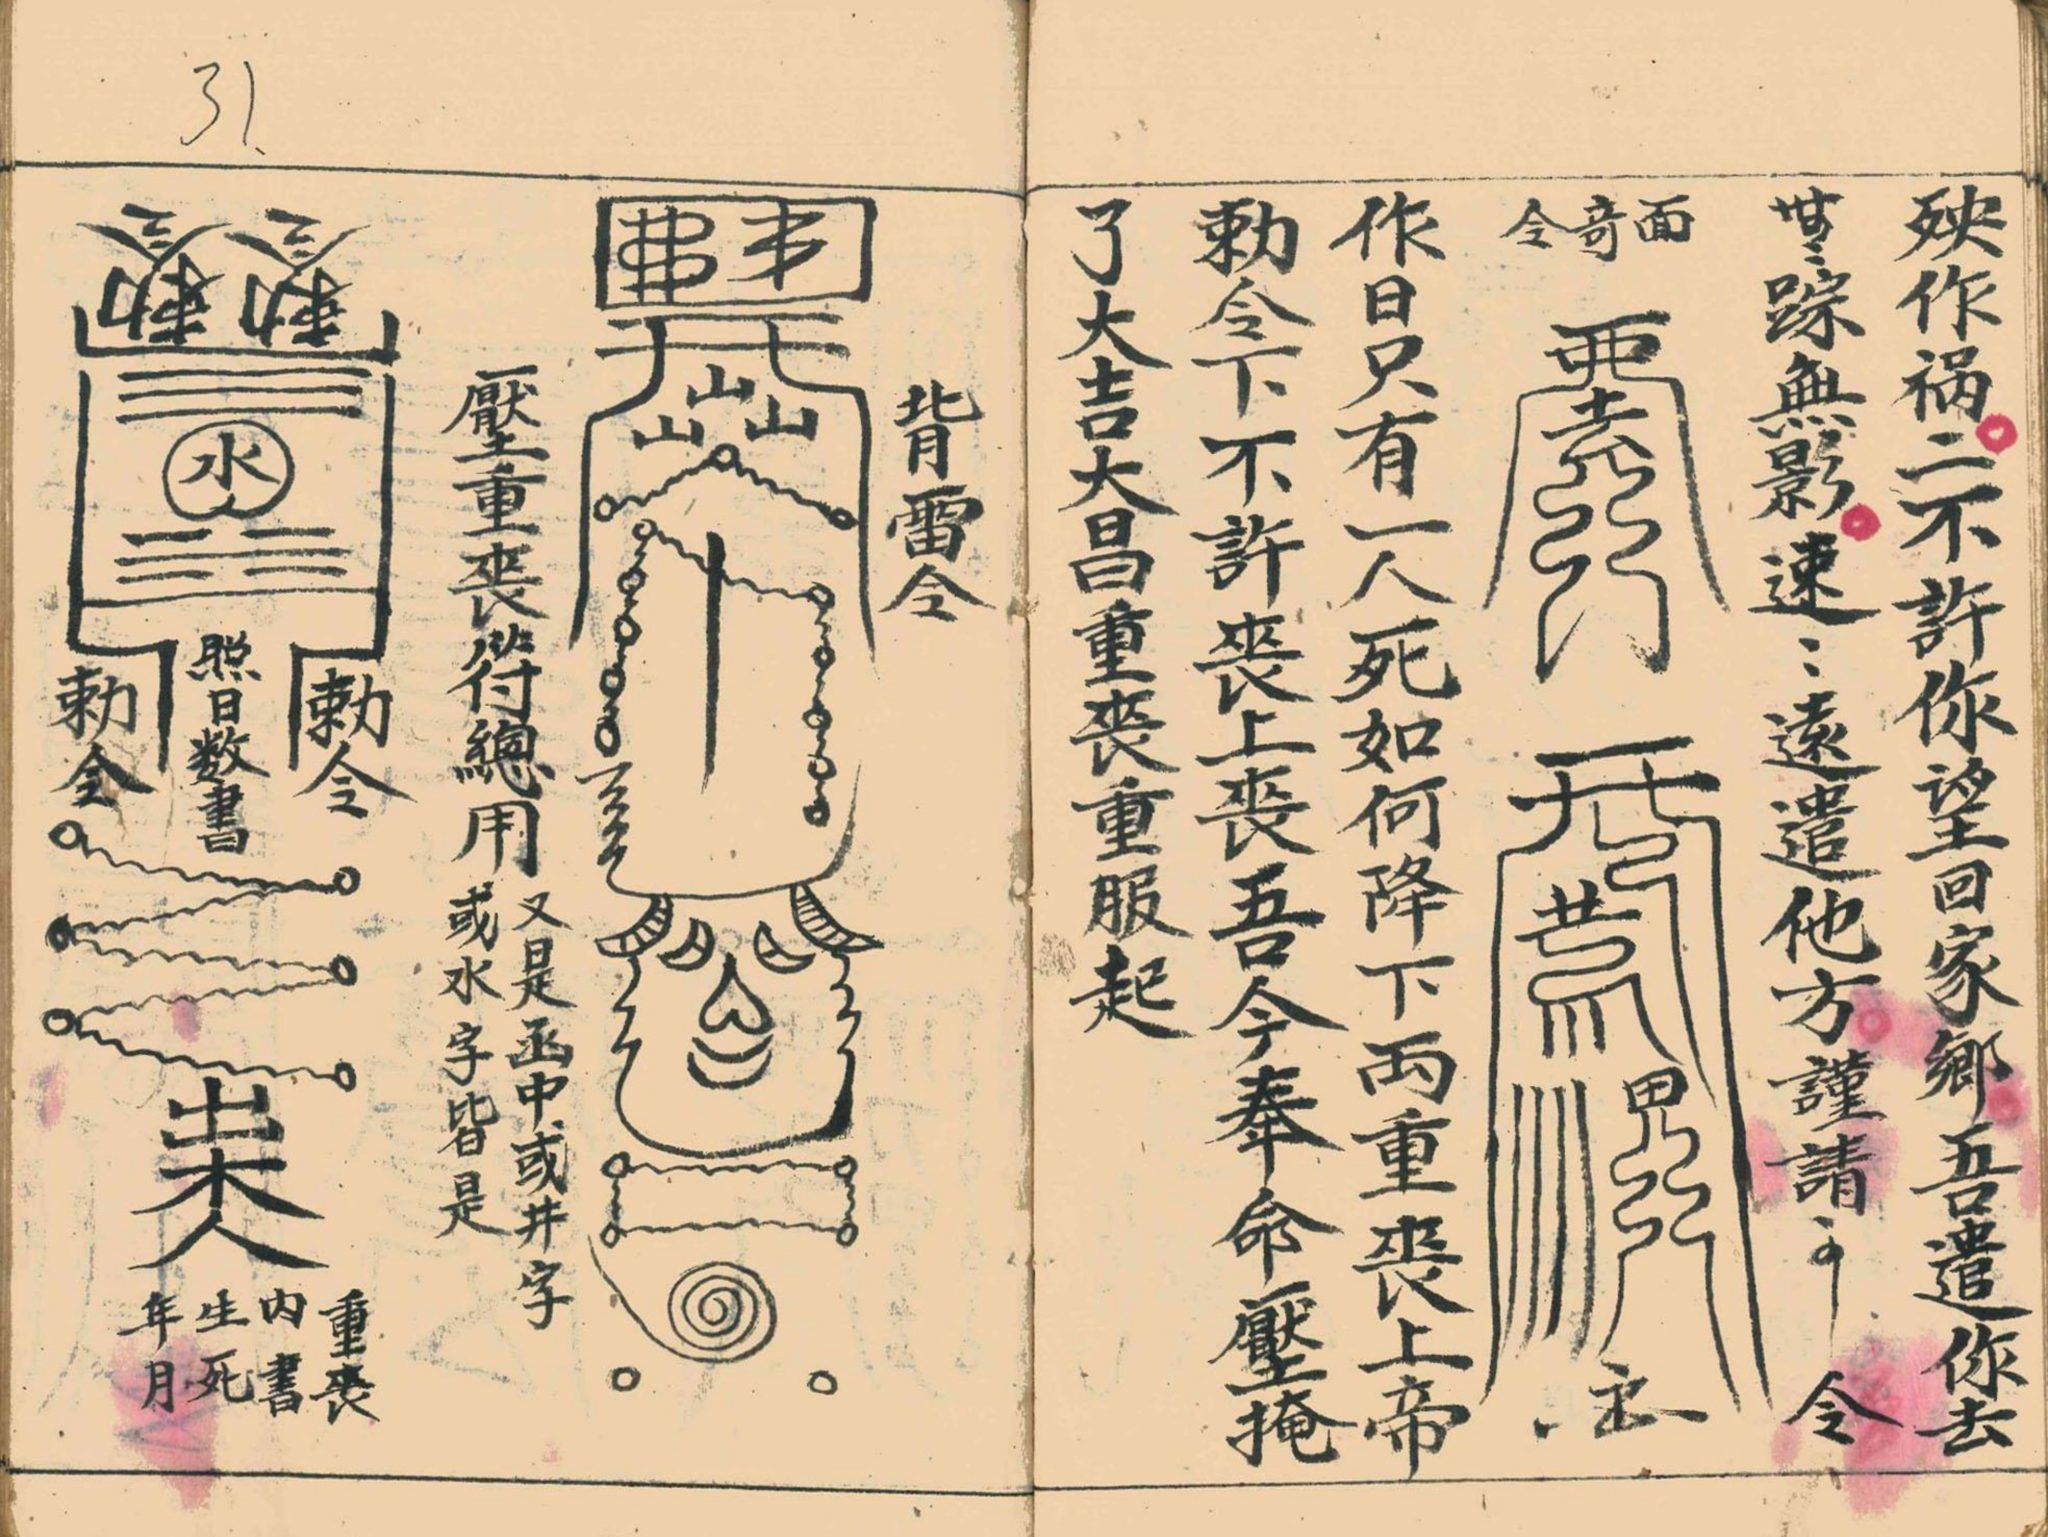 殃作祸二不許你望回家鄉吾遣你去
無踪無影速〻遠遣他方謹請
令
面奇令
作日只有一人死如何降下两重丧上帝
勅令下不許丧上丧吾今奉命壓掩
了大吉大昌重丧重服起
背雷令
山山山
壓重丧符總用
又是函中或井字
或水字皆是
勅勅
水
勅令
照日数書
勅令
重丧
内書
生死
年月
31